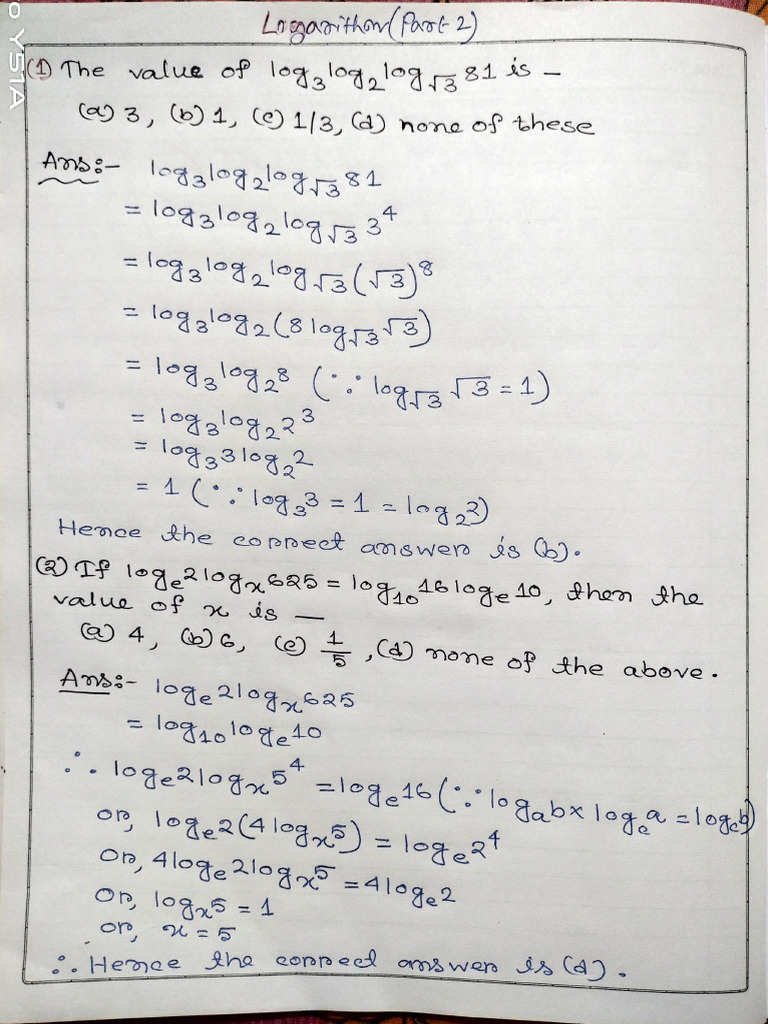 Logarithm (Part 2)
(1) The value of log₃log₂log_√3 81 is —
(a) 3, (b) 1, (c) 1/3, (d) none of these
Ans:- log₃log₂log_√3 81
= log₃log₂log_√3 3⁴
= log₃log₂log_√3 (√3)⁸
= log₃log₂(8log_√3 √3)
= log₃log₂8 (∵ log_√3 √3 = 1)
= log₃log₂2³
= log₃3log₂2
= 1 (∵ log₃3 = 1 = log₂2)
Hence the correct answer is (b).
(2) If logₑ2logₓ625 = log₁₀16logₑ10, then the
value of x is —
(a) 4, (b) 6, (c) 1/5, (d) none of the above.
Ans:- logₑ2logₓ625
= log₁₀logₑ10
∴ logₑ2logₓ5⁴ = logₑ16 (∵ logₐb × log_c a = log_c b)
or, logₑ2(4logₓ5) = logₑ2⁴
or, 4logₑ2logₓ5 = 4logₑ2
or, logₓ5 = 1
or, x = 5
∴ Hence the correct answer is (d).
O Y51A